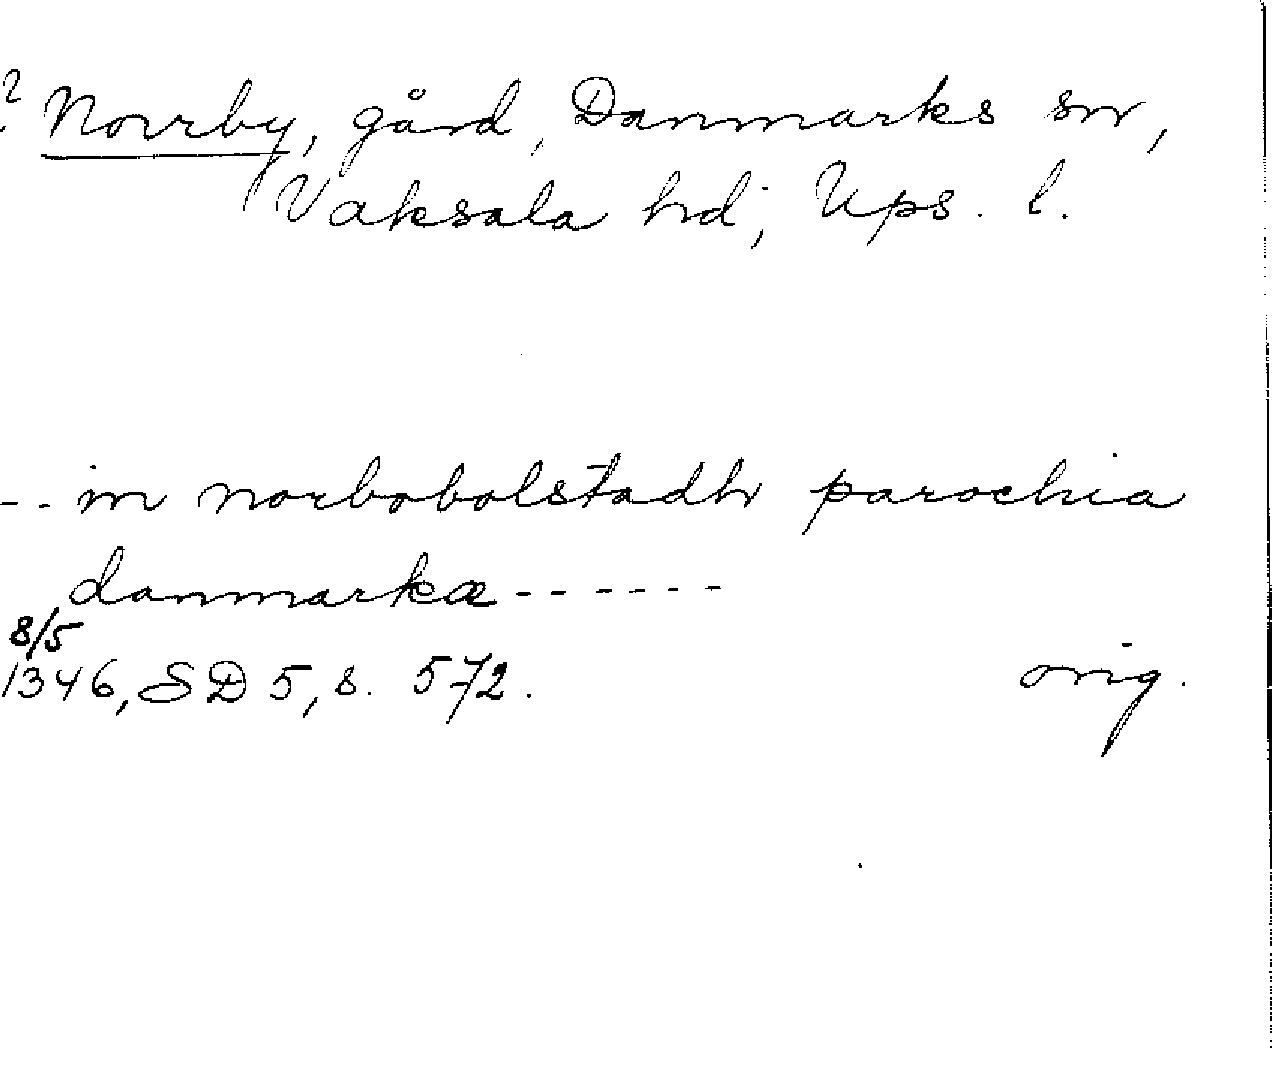 ? Norrby, gård, Danmarks sn,
Vaksala hd, Ups. l.
-- in norbobolstadh parochia
danmarkæ ------
8/5
1346, SD 5, s. 572. orig.